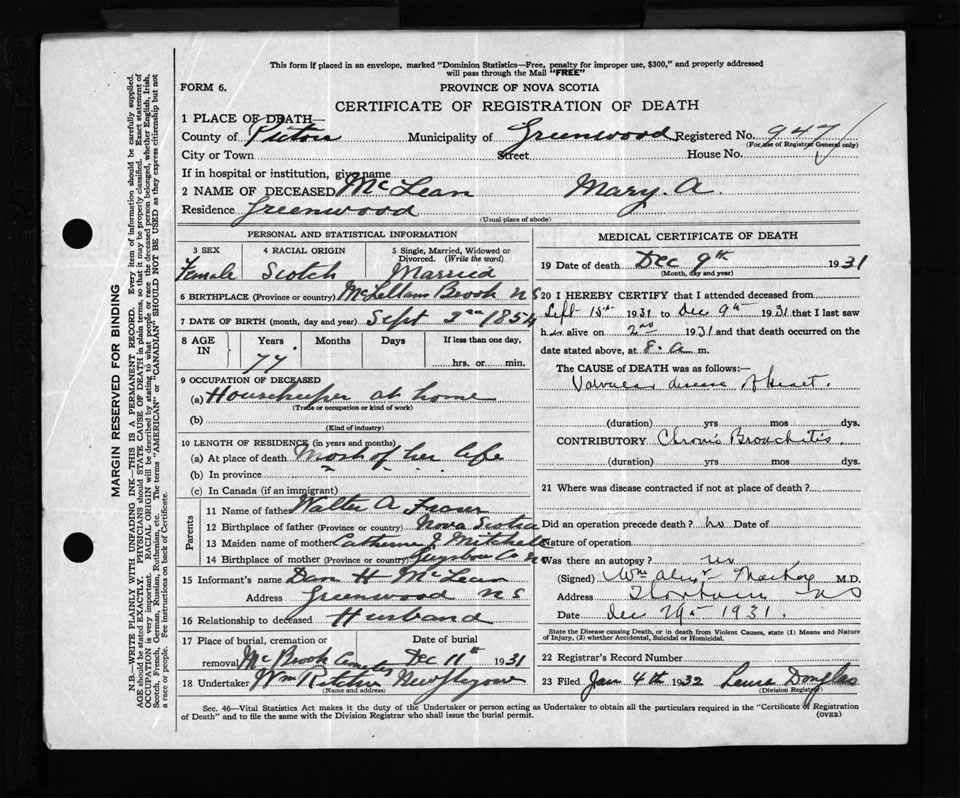 This form if placed in an envelope, marked "Dominion Statistics—Free, penalty for improper use, $300," and properly addressed
will pass through the Mail "FREE"
FORM 6.
PROVINCE OF NOVA SCOTIA
CERTIFICATE OF REGISTRATION OF DEATH
1 PLACE OF DEATH—
County of Pictou Municipality of Greenwood Registered No. 947
(For use of Registrar General only)
City or Town Street House No.
If in hospital or institution, give name
2 NAME OF DECEASED McLean Mary. A.
Residence Greenwood
(Usual place of abode)
PERSONAL AND STATISTICAL INFORMATION
3 SEX 4 RACIAL ORIGIN 5 Single, Married, Widowed or
Divorced. (Write the word)
Female Scotch Married
6 BIRTHPLACE (Province or country) McLellans Brook N S
7 DATE OF BIRTH (month, day and year) Sept 1854
8 AGE IN Years Months Days If less than one day,
77 hrs. or min.
9 OCCUPATION OF DECEASED
(a) Housekeeper at home
(Trade or occupation or kind of work)
(b)
(Kind of industry)
10 LENGTH OF RESIDENCE (in years and months)
(a) At place of death Most of her life
(b) In province
(c) In Canada (if an immigrant)
Parents
11 Name of father Walter A Fraser
12 Birthplace of father (Province or country) Nova Scotia
13 Maiden name of mother Catherine J Mitchell
14 Birthplace of mother (Province or country) Guysboro Co N S
15 Informant's name Dan H McLean
Address Greenwood N S
16 Relationship to deceased Husband
17 Place of burial, cremation or Date of burial
removal Mc Brook Cemetery Dec 11th 1931
18 Undertaker Wm Ritchie New Glasgow
(Name and address)
MEDICAL CERTIFICATE OF DEATH
19 Date of death Dec 9th 1931
(Month, day and year)
20 I HEREBY CERTIFY that I attended deceased from
Sept 15th 1931 to Dec 9th 1931 that I last saw
her alive on 2nd 1931 and that death occurred on the
date stated above, at 8. a m.
The CAUSE OF DEATH was as follows:—
Valvular disease of heart.
(duration) yrs mos dys.
CONTRIBUTORY Chronic Bronchitis.
(duration) yrs mos dys.
21 Where was disease contracted if not at place of death?
Did an operation precede death? no Date of
Nature of operation
Was there an autopsy? no
(Signed) Wm Alexr MacKay M.D.
Address Thorburn N S
Date Dec 29th 1931.
State the Disease causing Death, or in death from Violent Causes, state (1) Means and Nature
of Injury, (2) whether Accidental, Suicidal or Homicidal.
22 Registrar's Record Number
23 Filed Jan 4th 1932 Lena Douglas
(Division Registrar)
Sec. 46—Vital Statistics Act makes it the duty of the Undertaker or person acting as Undertaker to obtain all the particulars required in the "Certificate of Registration
of Death" and to file the same with the Division Registrar who shall issue the burial permit.
(OVER)
MARGIN RESERVED FOR BINDING
N.B.—WRITE PLAINLY WITH UNFADING INK—THIS IS A PERMANENT RECORD. Every item of information should be carefully supplied.
AGE should be stated EXACTLY. PHYSICIANS should STATE CAUSE OF DEATH in plain terms, so that it may be properly classified. Exact statement of
OCCUPATION is very important. RACIAL ORIGIN will be described by stating to what people or race the deceased person belonged, whether English, Irish,
Scotch, French, German, Russian, Ruthenian, etc. The terms "AMERICAN" or "CANADIAN" SHOULD NOT BE USED as they express citizenship but not
a race or people. See instructions on back of Certificate.